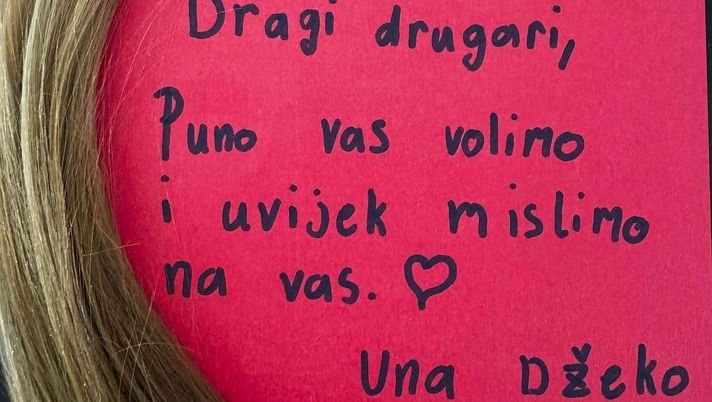 Dragi drugari,
Puno vas volimo
i uvijek mislimo
na vas.
Una Džeko